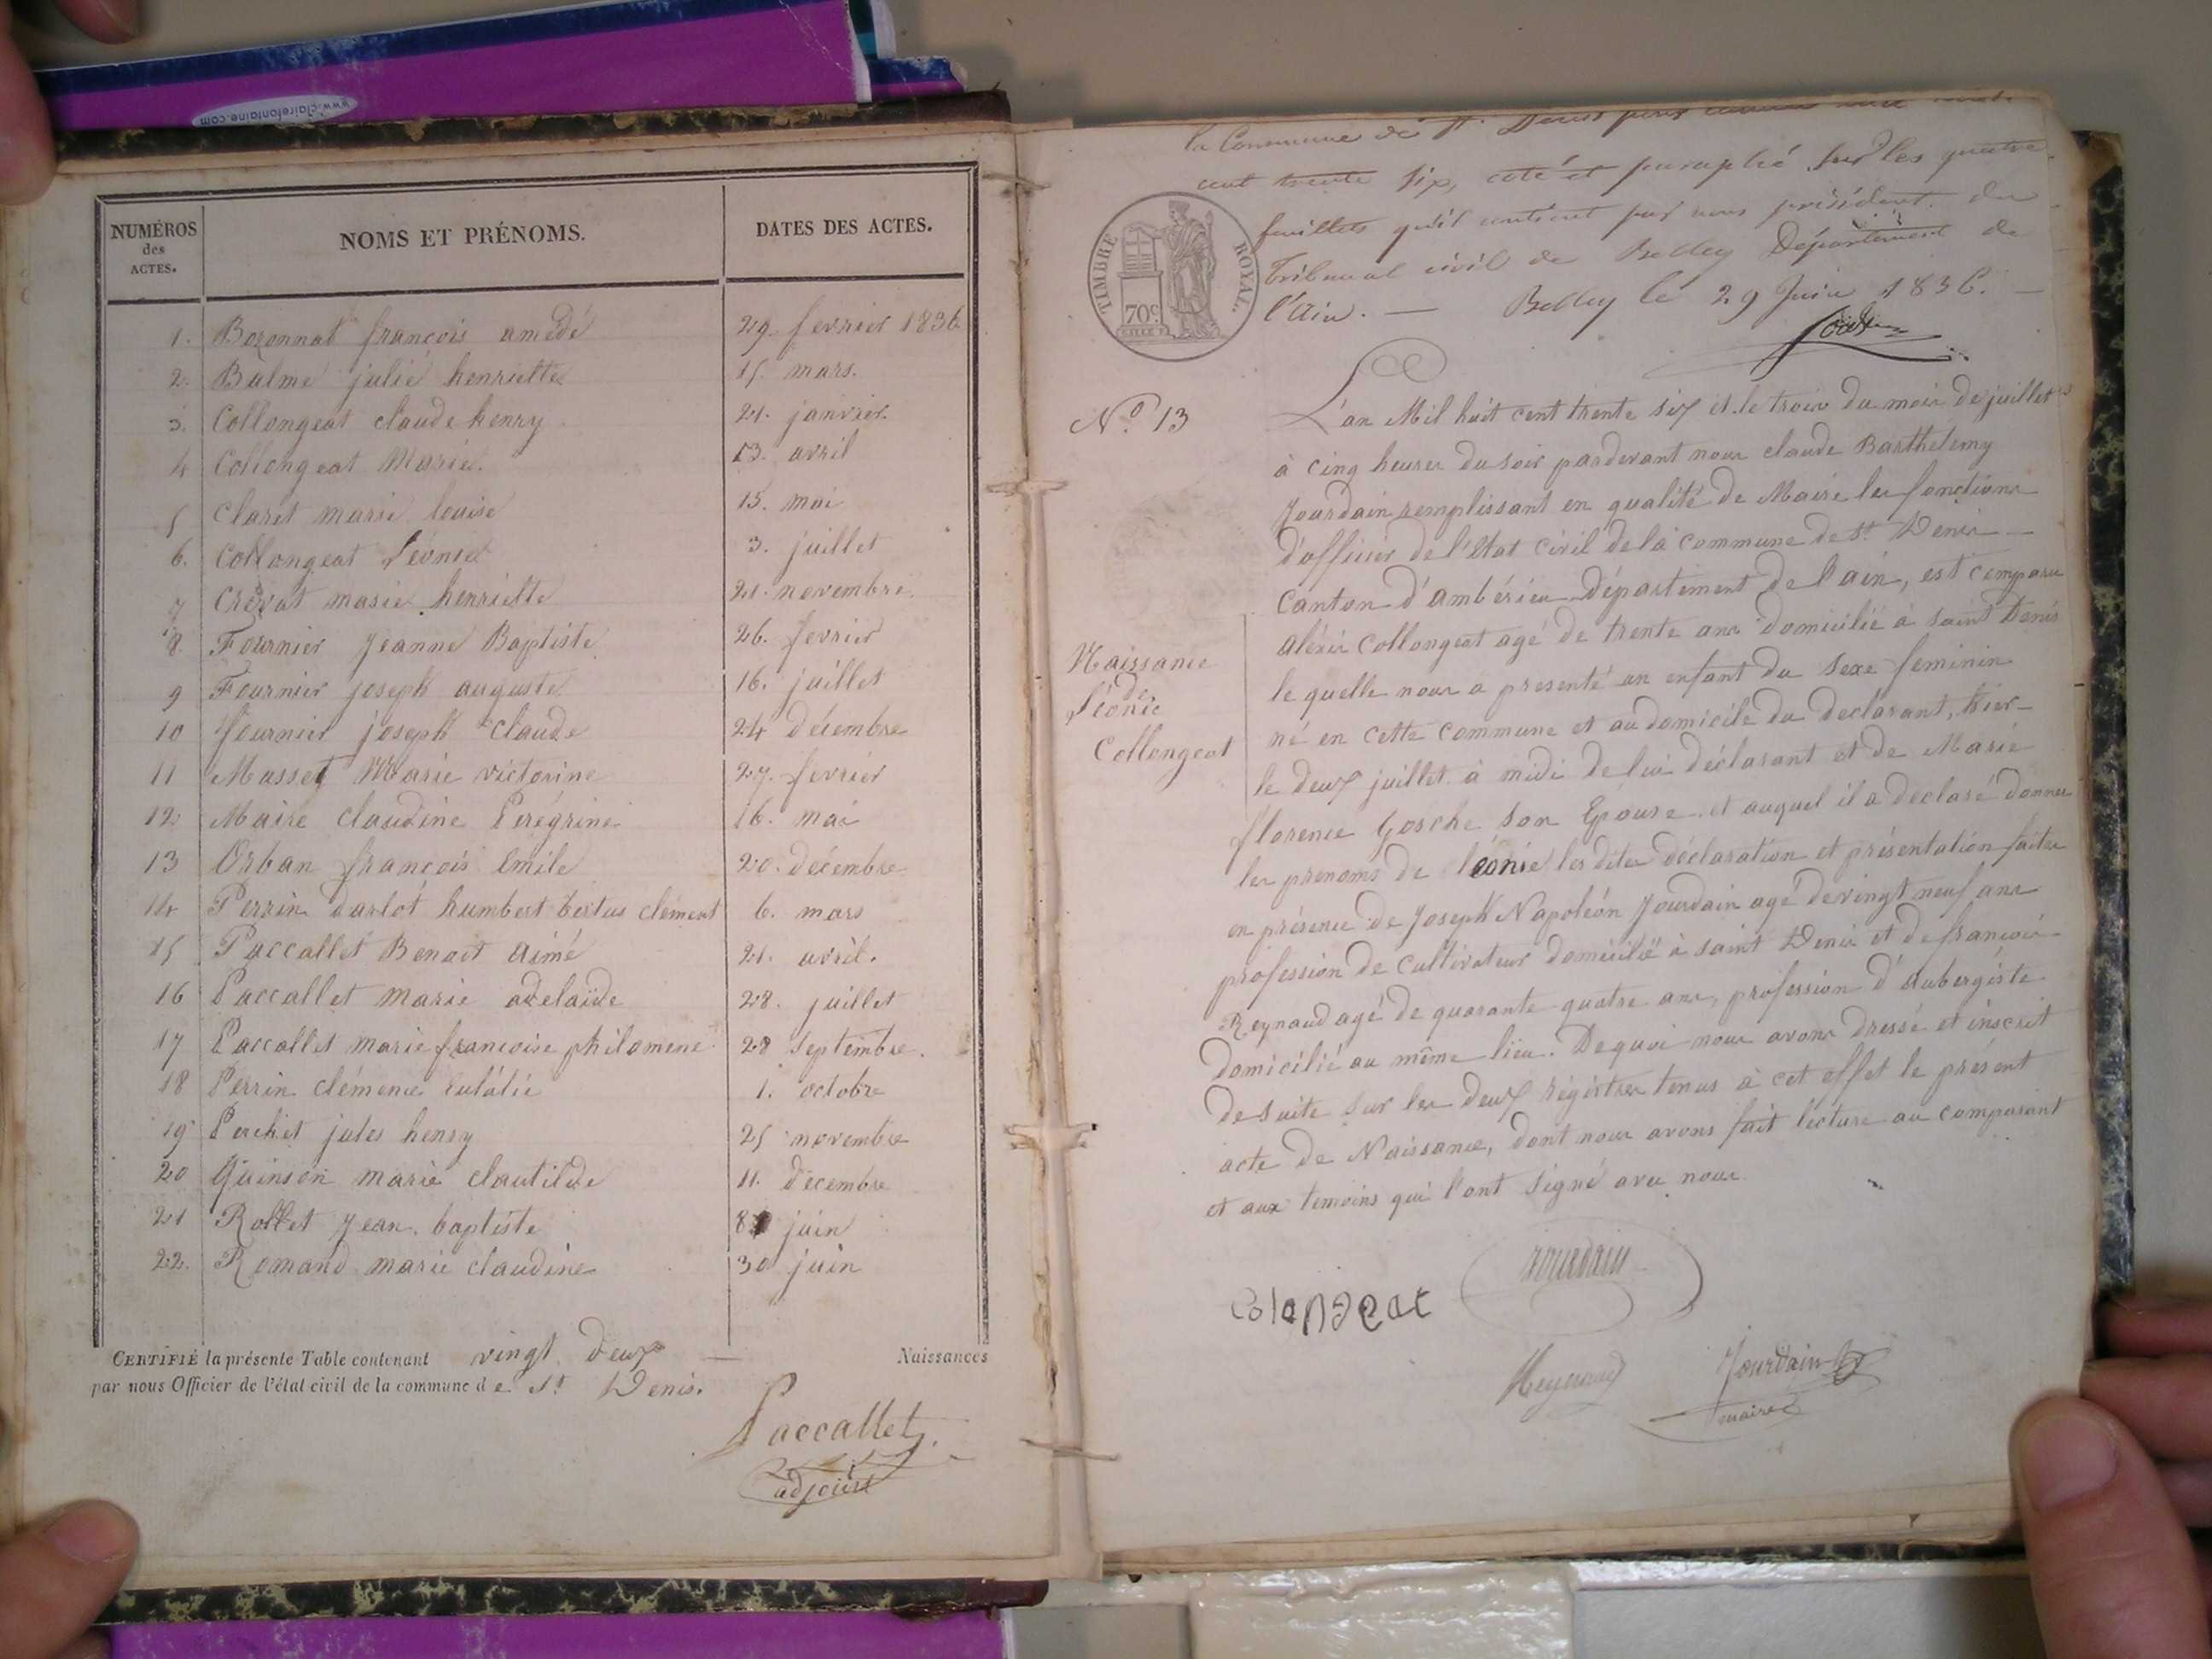 www.clairefontaine.com
NUMÉROS
des
ACTES.
NOMS ET PRÉNOMS.
DATES DES ACTES.
1. Bozonnat françois amédé 29. fevrier 1836
2. Balme julie henriette 15. mars.
3. Collongeat claude henry 21. janvier.
4 Collongeat Marie. 13. avril
5 Claret marie louise 15. mai
6. Collongeat Léonie 3. juillet
7 Crevat marie henriette 21. novembre.
8. Fournier jeanne Baptiste 26. fevrier
9 Fournier joseph auguste 16. juillet
10 fournier joseph claude 24 décembre
11 Masset Marie victorine 27. fevrier
12 Maire claudine Perégrine 16. mai
13 Orban françois Emile 20. décembre
14 Perrin darlot humbert clément 6. mars
15 Paccallet Benoit aimé 21. avril.
16 Paccallet marie adelaïde 28. juillet
17 Paccallet marie francoise philomene 28 septembre.
18 Perrin clémence Eulálie 1. octobre
19 jules henry 25 novembre
20 Quinson marie clautilde 11. décembre
21 Rollet jean. baptiste 8 juin
22. Romand marie claudine 30 juin
CERTIFIÉ la présente Table contenant vingt deux — Naissances
par nous Officier de l'état civil de la commune d e St Denis.
Paccallet
adjoint
la Commune de St. Denis pour
cent trente six, coté et paraphé sur les quatre
feuillets qu'il contient par nous président du
Tribunal civil de Belley Département de
l'Ain. — Belley le 29 Juin 1836. —
TIMBRE ROYAL.
70c
No. 13
L'an Mil huit cent trente six et le trois du mois de juillet
à cinq heures du soir pardevant nous claude Barthelemy
Jourdain remplissant en qualité de Maire les fonctions
d'officier de l'état civil de la commune de St Denis —
Canton d'ambérieu Département de l'ain, est comparu
aléxis Collongeat agé de trente ans domicilié à saint Denis
le quelle nous a presenté un enfant du sexe feminin
né en cette commune et au domicile du declarant, hier —
le deux juillet à midi de lui déclarant et de Marie
florence Gosche son Epouse. et auquel il a declaré donner
les prenoms de léonie les dites déclaration et présentation faites
en présence de Joseph Napoléon Jourdain agé de vingt neuf ans
profession de Cultivateur domicilié à saint Denis et de françois —
Reynaud agé de quarante quatre ans, profession d'aubergiste
Domicilié au même lieu. De quoi nous avons dressé et inscrit
de suite sur les deux régistres tenus à cet effet le présent
acte de Naissance, dont nous avons fait lecture au comparant
et aux temoins qui l'ont signé avec nous.
Naissance
de
Léonie
Collongeat
Jourdain
Colongeat
Reynaud
Jourdain
maire